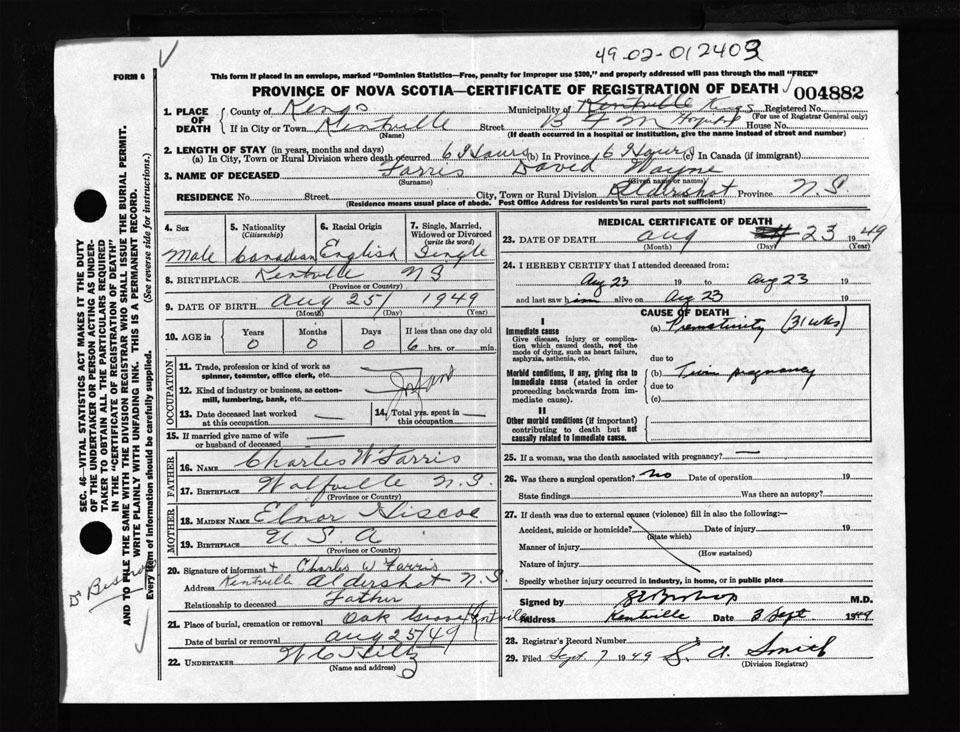 49-02-012403
FORM 6
This form if placed in an envelope, marked "Dominion Statistics—Free, penalty for improper use $300," and properly addressed will pass through the mail "FREE"
PROVINCE OF NOVA SCOTIA—CERTIFICATE OF REGISTRATION OF DEATH
004882
1. PLACE OF DEATH
County of Kings Municipality of Kentville Kings Registered No.
(For use of Registrar General only)
If in City or Town Kentville Street B F M Hospital House No.
(Name) (If death occurred in a hospital or institution, give the name instead of street and number)
2. LENGTH OF STAY (in years, months and days)
(a) In City, Town or Rural Division where death occurred 6 Hours (b) In Province 6 Hours (c) In Canada (if immigrant)
3. NAME OF DECEASED Farris David Wayne
(Surname) (Given name or names)
RESIDENCE No. Street City, Town or Rural Division Aldershot Province N.S
(Residence means usual place of abode. Post Office Address for residents in rural parts not sufficient)
4. Sex Male
5. Nationality (Citizenship) Canadian
6. Racial Origin English
7. Single, Married, Widowed or Divorced (write the word) Single
8. BIRTHPLACE Kentville N S
(Province or Country)
9. DATE OF BIRTH Aug 25/ 1949
(Month) (Day) (Year)
10. AGE in Years Months Days If less than one day old
0 0 0 6 hrs. or min.
OCCUPATION
11. Trade, profession or kind of work as spinner, teamster, office clerk, etc. —
12. Kind of industry or business, as cotton-mill, lumbering, bank, etc. —
Infant
13. Date deceased last worked at this occupation —
14. Total yrs. spent in this occupation —
15. If married give name of wife or husband of deceased —
FATHER
16. NAME Charles W Farris
17. BIRTHPLACE Wolfville N.S.
(Province or Country)
MOTHER
18. MAIDEN NAME Elnor Hiscoe
19. BIRTHPLACE U.S.A
(Province or Country)
20. Signature of informant x Charles W Farris
Address Kentville Aldershot N.S.
Relationship to deceased Father
21. Place of burial, cremation or removal Oak Grove Kentville
Date of burial or removal Aug 25/49
22. UNDERTAKER W C Hiltz
(Name and address)
MEDICAL CERTIFICATE OF DEATH
23. DATE OF DEATH Aug 23 1949
(Month) (Day) (Year)
24. I HEREBY CERTIFY that I attended deceased from:
Aug 23 19 to Aug 23 19
and last saw him alive on Aug 23 19
CAUSE OF DEATH
I
Immediate cause
Give disease, injury or complication which caused death, not the mode of dying, such as heart failure, asphyxia, asthenia, etc.
(a) Prematurity (31 wks)
due to
Morbid conditions, if any, giving rise to immediate cause (stated in order proceeding backwards from immediate cause).
(b) Twin pregnancy
due to
(c)
II
Other morbid conditions (if important) contributing to death but not causally related to immediate cause.
25. If a woman, was the death associated with pregnancy? —
26. Was there a surgical operation? no Date of operation 19
State findings Was there an autopsy?
27. If death was due to external causes (violence) fill in also the following:—
Accident, suicide or homicide? Date of injury 19
(State which)
Manner of injury
(How sustained)
Nature of injury
Specify whether injury occurred in industry, in home, or in public place
Signed by M.D.
Address Kentville Date 3 Sept 1949
28. Registrar's Record Number
29. Filed Sept. 7 1949 S. A. Smith
(Division Registrar)
SEC. 46—VITAL STATISTICS ACT MAKES IT THE DUTY
OF THE UNDERTAKER OR PERSON ACTING AS UNDER-
TAKER TO OBTAIN ALL THE PARTICULARS REQUIRED
IN THE "CERTIFICATE OF REGISTRATION OF DEATH"
AND TO FILE THE SAME WITH THE DIVISION REGISTRAR WHO SHALL ISSUE THE BURIAL PERMIT.
WRITE PLAINLY WITH UNFADING INK. THIS IS A PERMANENT RECORD.
Every item of information should be carefully supplied. (See reverse side for instructions.)
Dr Bishop